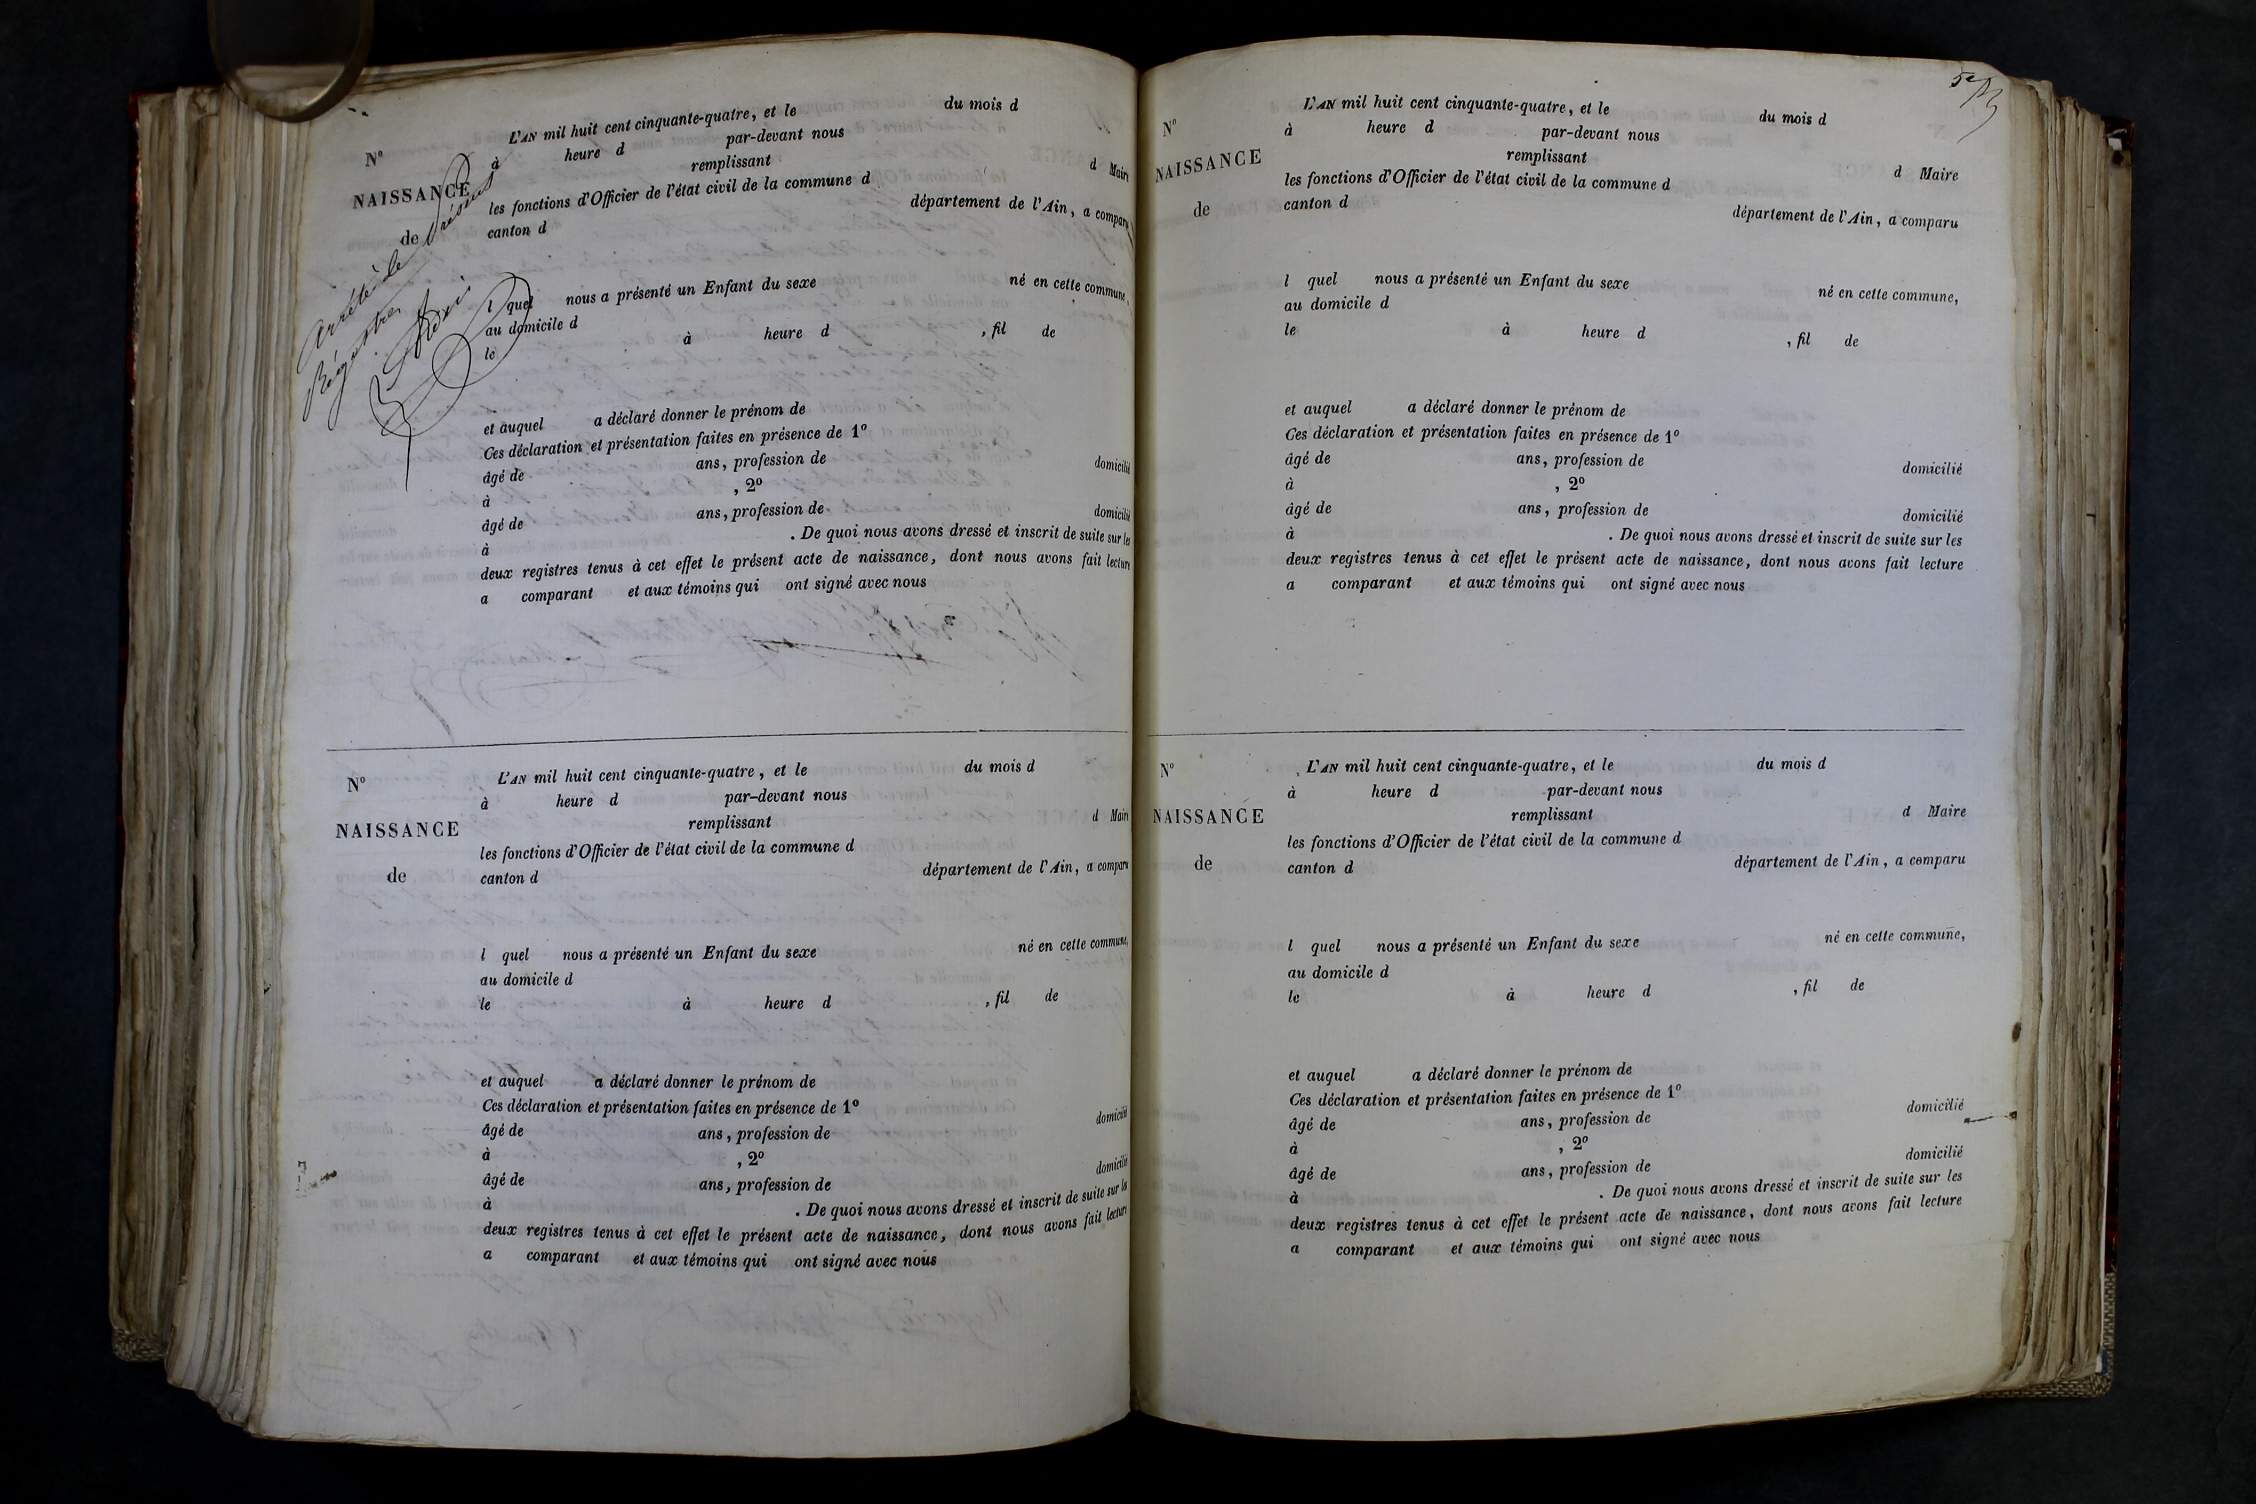 Arrêté le présent
Régistre
N°
NAISSANCE
de
L'AN mil huit cent cinquante-quatre, et le du mois d
à heure d par-devant nous
remplissant d Maire
les fonctions d'Officier de l'état civil de la commune d
canton d département de l'Ain, a comparu
l quel nous a présenté un Enfant du sexe né en cette commune,
au domicile d
le à heure d , fil de
et auquel a déclaré donner le prénom de
Ces déclaration et présentation faites en présence de 1°
âgé de ans, profession de domicilié
à , 2°
âgé de ans, profession de domicilié
à . De quoi nous avons dressé et inscrit de suite sur les
deux registres tenus à cet effet le présent acte de naissance, dont nous avons fait lecture
a comparant et aux témoins qui ont signé avec nous
N°
NAISSANCE
de
L'AN mil huit cent cinquante-quatre, et le du mois d
à heure d par-devant nous
remplissant d Maire
les fonctions d'Officier de l'état civil de la commune d
canton d département de l'Ain, a comparu
l quel nous a présenté un Enfant du sexe né en cette commune,
au domicile d
le à heure d , fil de
et auquel a déclaré donner le prénom de
Ces déclaration et présentation faites en présence de 1°
âgé de ans, profession de domicilié
à , 2°
âgé de ans, profession de domicilié
à . De quoi nous avons dressé et inscrit de suite sur les
deux registres tenus à cet effet le présent acte de naissance, dont nous avons fait lecture
a comparant et aux témoins qui ont signé avec nous
N°
NAISSANCE
de
L'AN mil huit cent cinquante-quatre, et le du mois d
à heure d par-devant nous
remplissant d Maire
les fonctions d'Officier de l'état civil de la commune d
canton d département de l'Ain, a comparu
l quel nous a présenté un Enfant du sexe né en cette commune,
au domicile d
le à heure d , fil de
et auquel a déclaré donner le prénom de
Ces déclaration et présentation faites en présence de 1°
âgé de ans, profession de domicilié
à , 2°
âgé de ans, profession de domicilié
à . De quoi nous avons dressé et inscrit de suite sur les
deux registres tenus à cet effet le présent acte de naissance, dont nous avons fait lecture
a comparant et aux témoins qui ont signé avec nous
N°
NAISSANCE
de
L'AN mil huit cent cinquante-quatre, et le du mois d
à heure d par-devant nous
remplissant d Maire
les fonctions d'Officier de l'état civil de la commune d
canton d département de l'Ain, a comparu
l quel nous a présenté un Enfant du sexe né en cette commune,
au domicile d
le à heure d , fil de
et auquel a déclaré donner le prénom de
Ces déclaration et présentation faites en présence de 1°
âgé de ans, profession de domicilié
à , 2°
âgé de ans, profession de domicilié
à . De quoi nous avons dressé et inscrit de suite sur les
deux registres tenus à cet effet le présent acte de naissance, dont nous avons fait lecture
a comparant et aux témoins qui ont signé avec nous